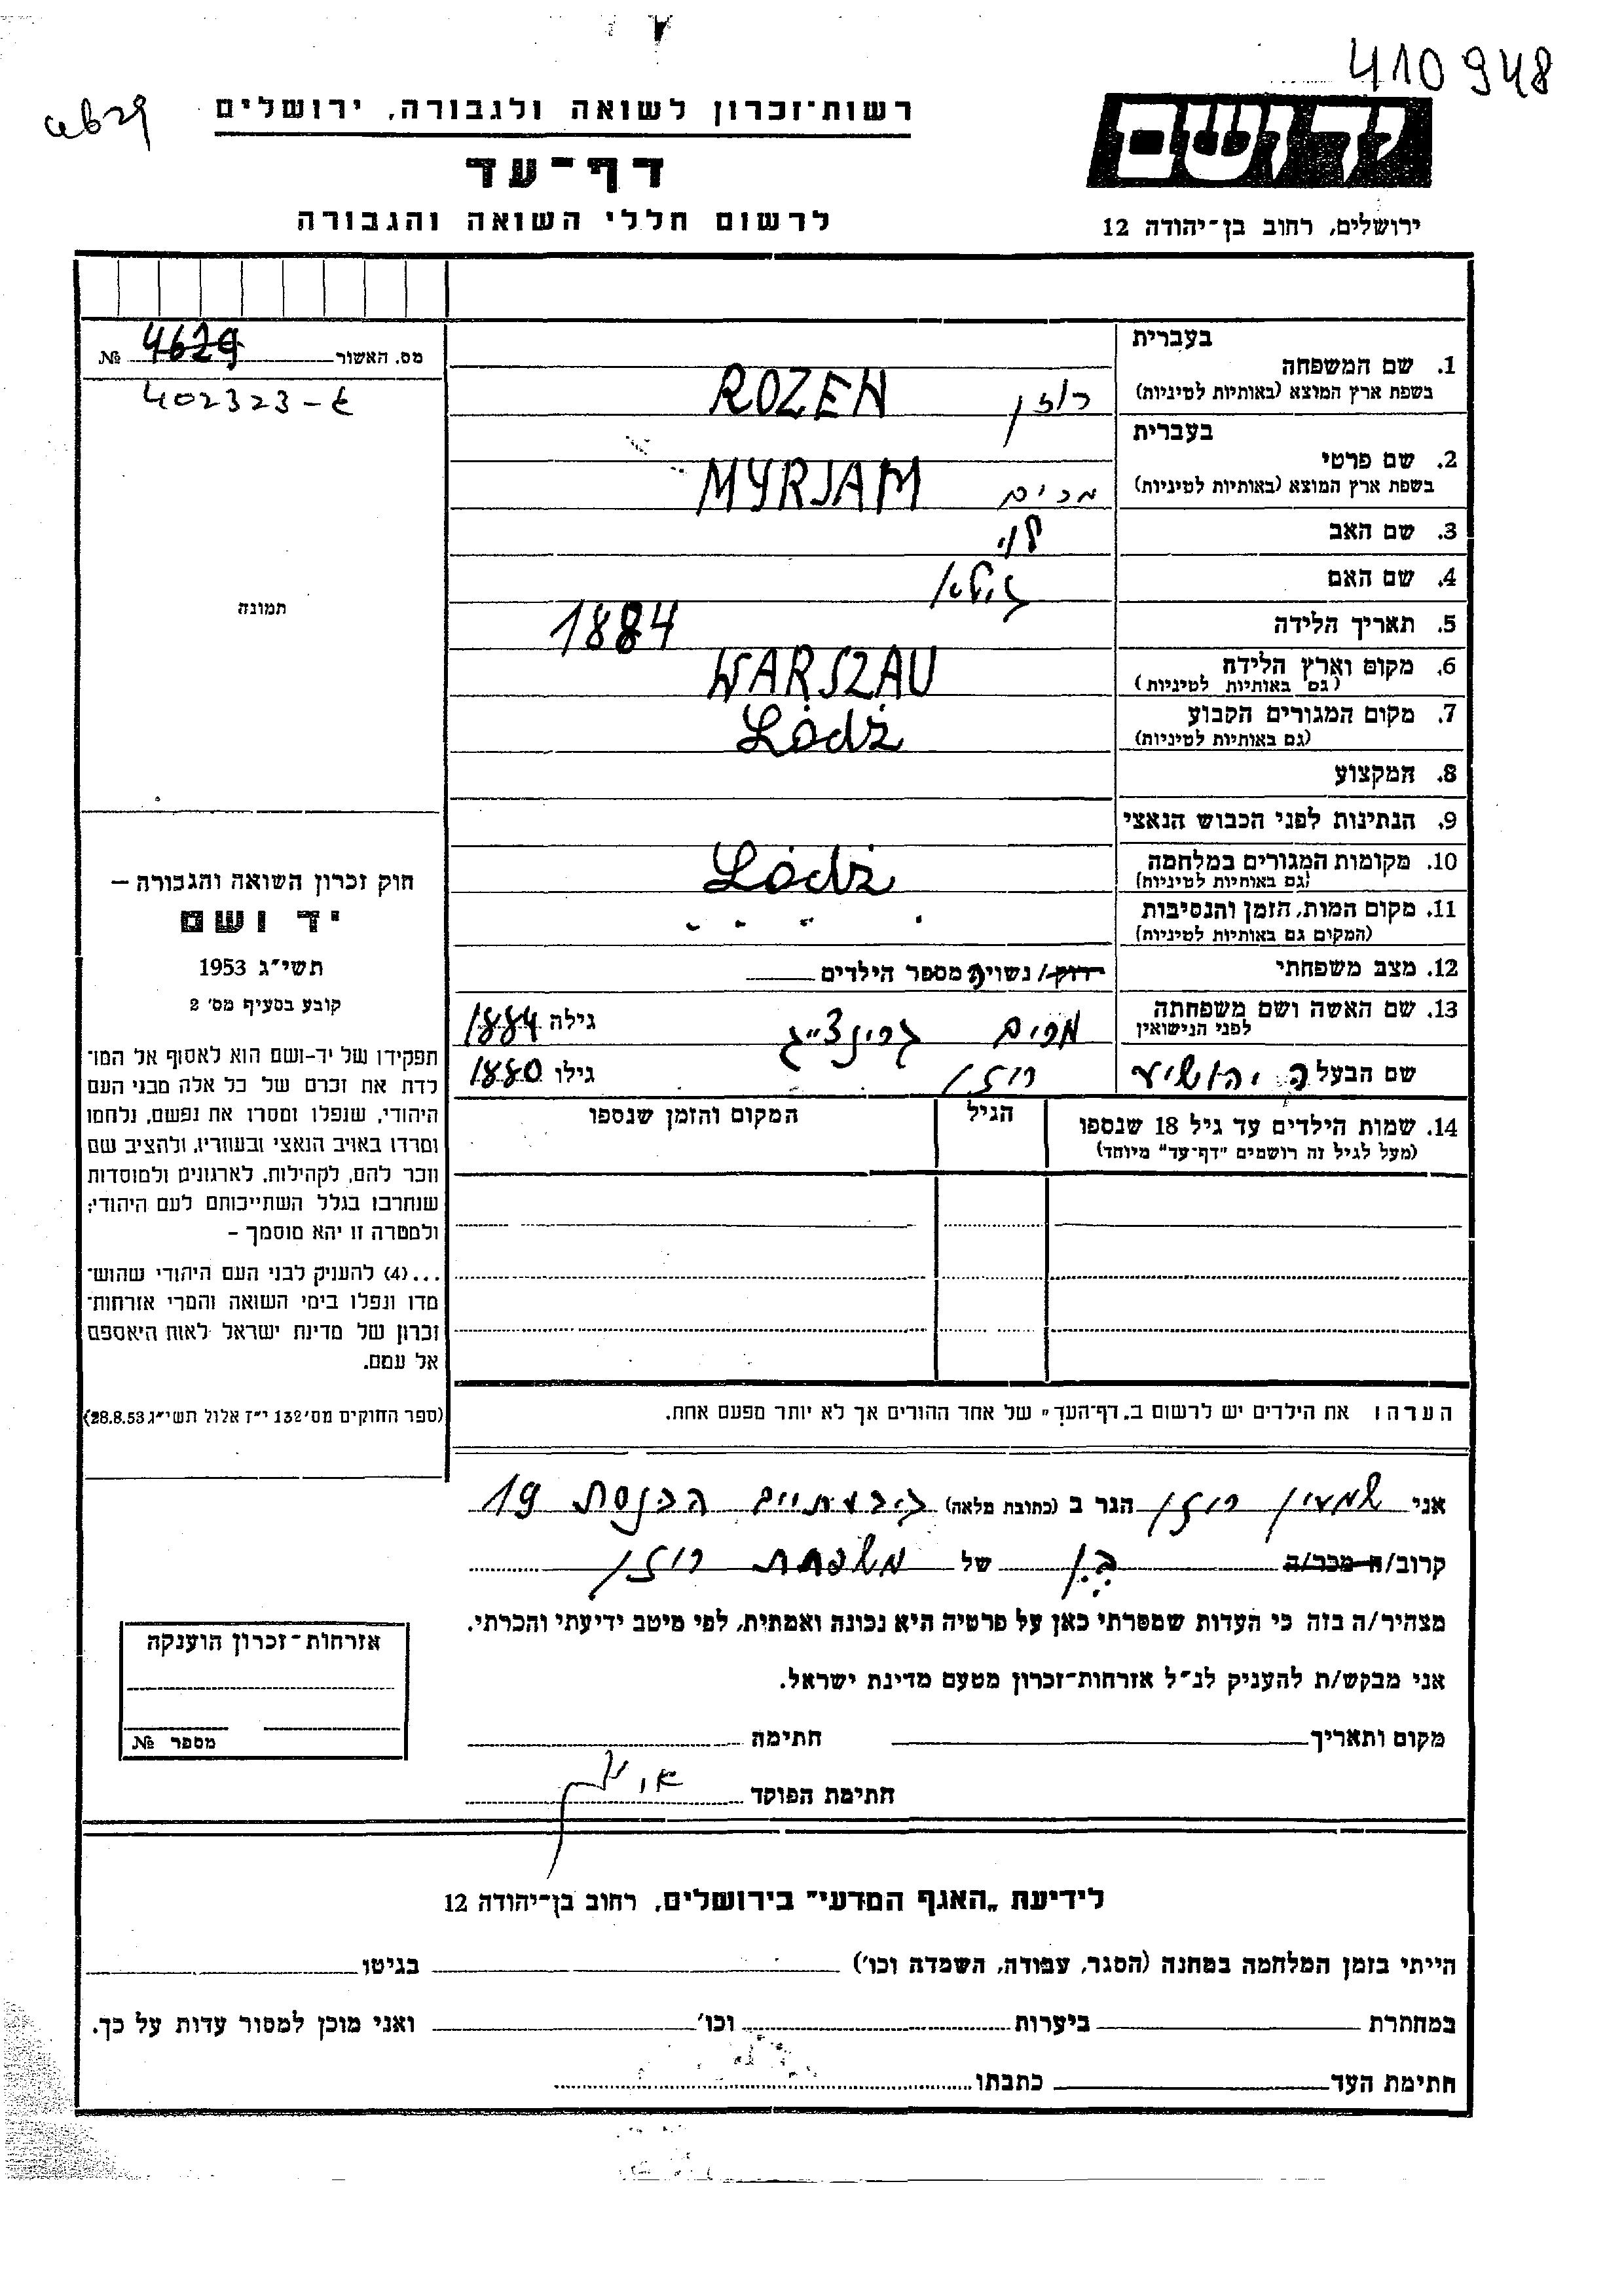 410948
4629
רשות־זכרון לשואה ולגבורה, ירושלים
דף־עד
לרשום חללי השואה והגבורה
יד ושם
ירושלים, רחוב בן־יהודה 12
מס. האשור 4629 №
402323-ع
תמונה
בעברית
1. שם המשפחה
בשפת ארץ המוצא (באותיות לטיניות)
רוזן ROZEN
בעברית
2. שם פרטי
בשפת ארץ המוצא (באותיות לטיניות)
מרים MYRJAM
3. שם האב
לוי
4. שם האם
5. תאריך הלידה
1884
6. מקום וארץ הלידה
(גם באותיות לטיניות)
WARSZAU
7. מקום המגורים הקבוע
(גם באותיות לטיניות)
Łódź
8. המקצוע
9. הנתינות לפני הכבוש הנאצי
10. מקומות המגורים במלחמה
(גם באותיות לטיניות)
Łódź
11. מקום המות, הזמן והנסיבות
(המקום גם באותיות לטיניות)
- - - -
12. מצב משפחתי
רוק/ נשויה מספר הילדים
13. שם האשה ושם משפחתה
לפני הנישואין
מרים גרינצ״ג גילה 1884
שם הבעל ה יהושיע רוזן גילו 1880
14. שמות הילדים עד גיל 18 שנספו
(מעל לגיל זה רושמים "דף־עד" מיוחד)
הגיל
המקום והזמן שנספו
הערה: את הילדים יש לרשום ב„דף־העד" של אחד ההורים אך לא יותר מפעם אחת.
חוק זכרון השואה והגבורה —
יד ושם
תשי"ג 1953
קובע בסעיף מס' 2
תפקידו של יד-ושם הוא לאסוף אל המו־
לדת את זכרם של כל אלה מבני העם
היהודי, שנפלו ומסרו את נפשם, נלחמו
ומרדו באויב הנאצי ובעוזריו, ולהציב שם
וזכר להם, לקהילות, לארגונים ולמוסדות
שנחרבו בגלל השתייכותם לעם היהודי;
ולמטרה זו יהא מוסמך –
...(4) להעניק לבני העם היהודי שהוש־
מדו ונפלו בימי השואה והמרי אזרחות־
זכרון של מדינת ישראל לאות היאספם
אל עמם.
(ספר החוקים מס' 132 י"ז אלול תשי"ג 28.8.53)
אני שמעון רוזן הגר ב (כתובת מלאה) גיבעתיים הכנסת 19
קרוב/ה מכר/ה בן של משפחת רוזן
מצהיר/ה בזה כי העדות שמסרתי כאן על פרטיה היא נכונה ואמתית, לפי מיטב ידיעתי והכרתי.
אני מבקש/ת להעניק לנ"ל אזרחות־זכרון מטעם מדינת ישראל.
מקום ותאריך חתימה
חתימת הפוקד
אזרחות־זכרון הוענקה
מספר №
לידיעת „האגף המדעי" בירושלים, רחוב בן־יהודה 12
הייתי בזמן המלחמה במחנה (הסגר, עבודה, השמדה וכו') בגיטו
במחתרת ביערות וכו' ואני מוכן למסור עדות על כך.
חתימת העד כתבתו